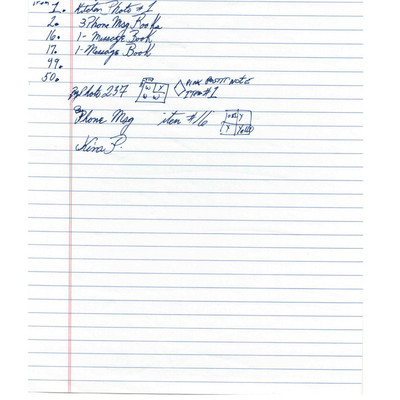 Item
1. Kitchen Photo #1
2. 3 Phone Msg Books
16. 1- Message Book
17. 1- Message Book
49.
50.
Photo 237 W Y W W Pink Postit Note Item #1
Phone Msg item #16 Y Y
Kira P.